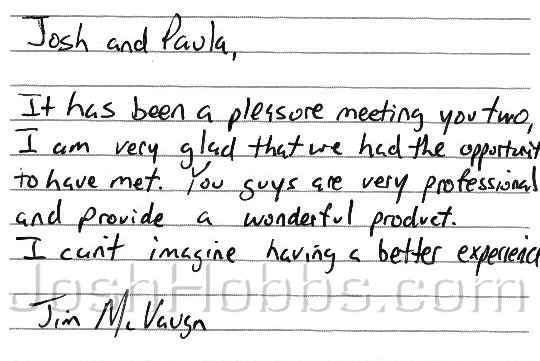 Josh and Paula,
It has been a pleasure meeting you two,
I am very glad that we had the opportunit
to have met. You guys are very professional
and provide a wonderful product.
I can't imagine having a better experienc
JoshHobbs.com
Jim McVaugn